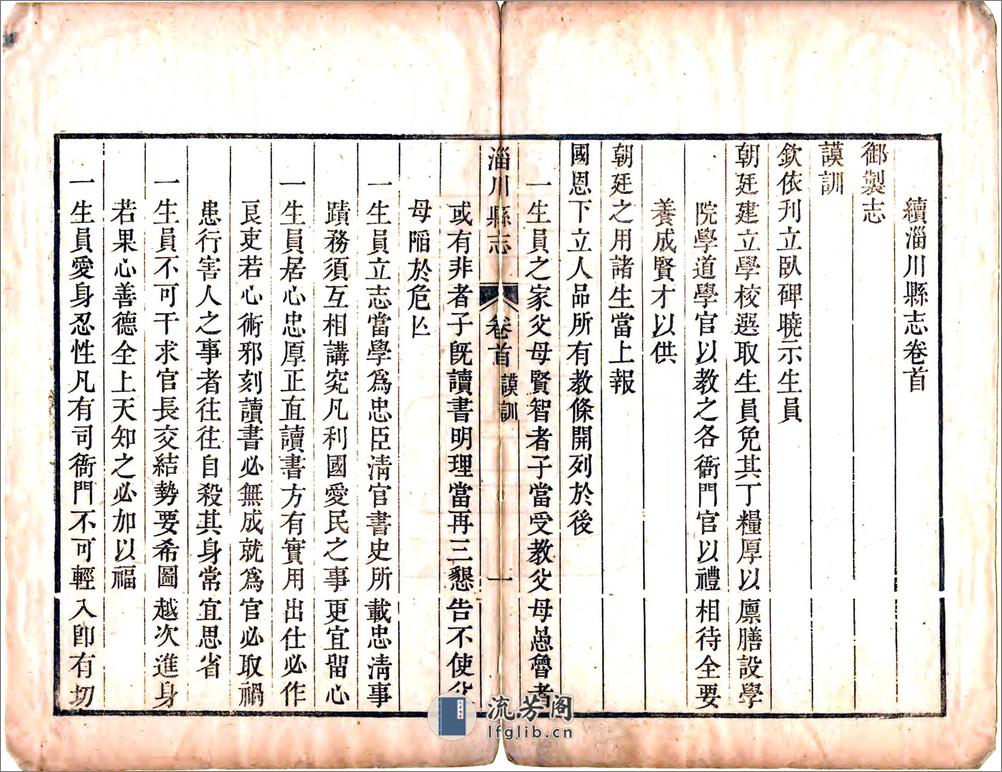 續淄川縣志卷首
御製志
謨訓
欽依刊立臥碑曉示生員
朝廷建立學校選取生員免其丁糧厚以廩膳設學
院學道學官以教之各衙門官以禮相待全要
養成賢才以供
朝廷之用諸生當上報
國恩下立人品所有教條開列於後
一生員之家父母賢智者子當受教父母愚魯者
淄川縣志 卷首 謨訓 一
或有非者子旣讀書明理當再三懇告不使父
母陷於危亾
一生員立志當學爲忠臣淸官書史所載忠淸事
蹟務須互相講究凡利國愛民之事更宜留心
一生員居心忠厚正直讀書方有實用出仕必作
良吏若心術邪刻讀書必無成就爲官必取禍
患行害人之事者往往自殺其身常宜思省
一生員不可干求官長交結勢要希圖越次進身
若果心善德全上天知之必加以福
一生員愛身忍性凡有司衙門不可輕入卽有切
流芳阁
lfglib.cn